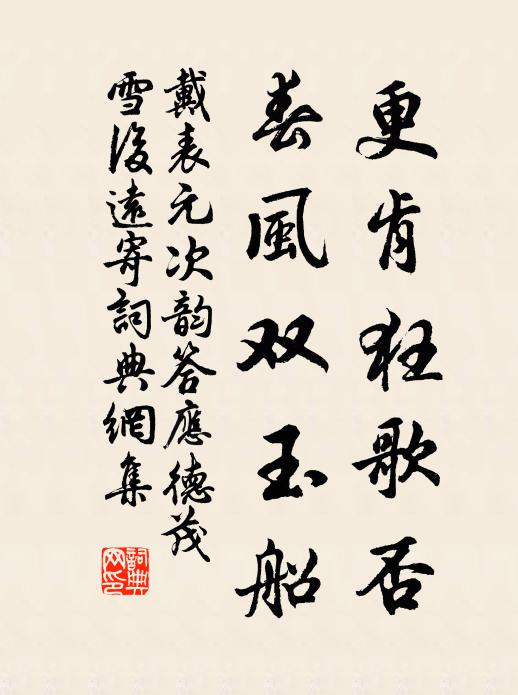 更肯狂歌否
春風双玉船
戴表元次韵答應德茂
雪後遠寄詞典網集
詞典网印